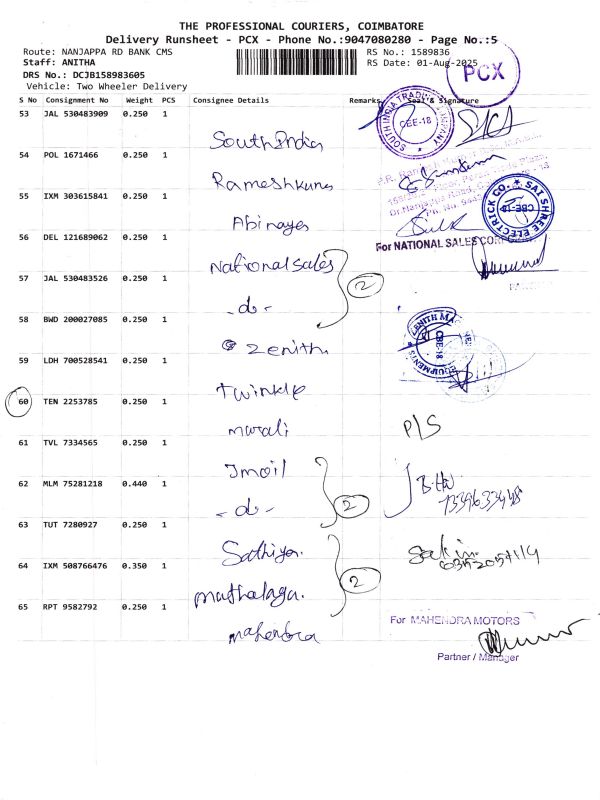 THE PROFESSIONAL COURIERS, COIMBATORE
Delivery Runsheet - PCX - Phone No.:9047080280 - Page No.:5
Route: NANJAPPA RD BANK CMS
RS No.: 1589836
Staff: ANITHA
RS Date: 01-Aug-2025
DRS No.: DCJB158983605
Vehicle: Two Wheeler Delivery
PCX
S No Consignment No Weight PCS Consignee Details Remarks Seal & Signature
53 JAL 530483909 0.250 1
South India
SOUTH INDIA TRADING COMPANY CBE-18
54 POL 1671466 0.250 1
Rameshkumar
55 IXM 303615841 0.250 1
Abinaya
SAI SHREE ELECTRICK CO. CBE-18
56 DEL 121689062 0.250 1
National sales
2
For NATIONAL SALES CORPORATION
57 JAL 530483526 0.250 1
- do -
58 BWD 200027085 0.250 1
Zenith
ZENITH EQUIPMENTS CBE-18
59 LDH 700528541 0.250 1
twinkle
60 TEN 2253785 0.250 1
murali
P/S
61 TVL 7334565 0.250 1
Jmoil
2
62 MLM 75281218 0.440 1
- do -
63 TUT 7280927 0.250 1
Sathiya
2
64 IXM 508766476 0.350 1
muthalagu.
65 RPT 9582792 0.250 1
mahendra
For MAHENDRA MOTORS
Partner / Manager